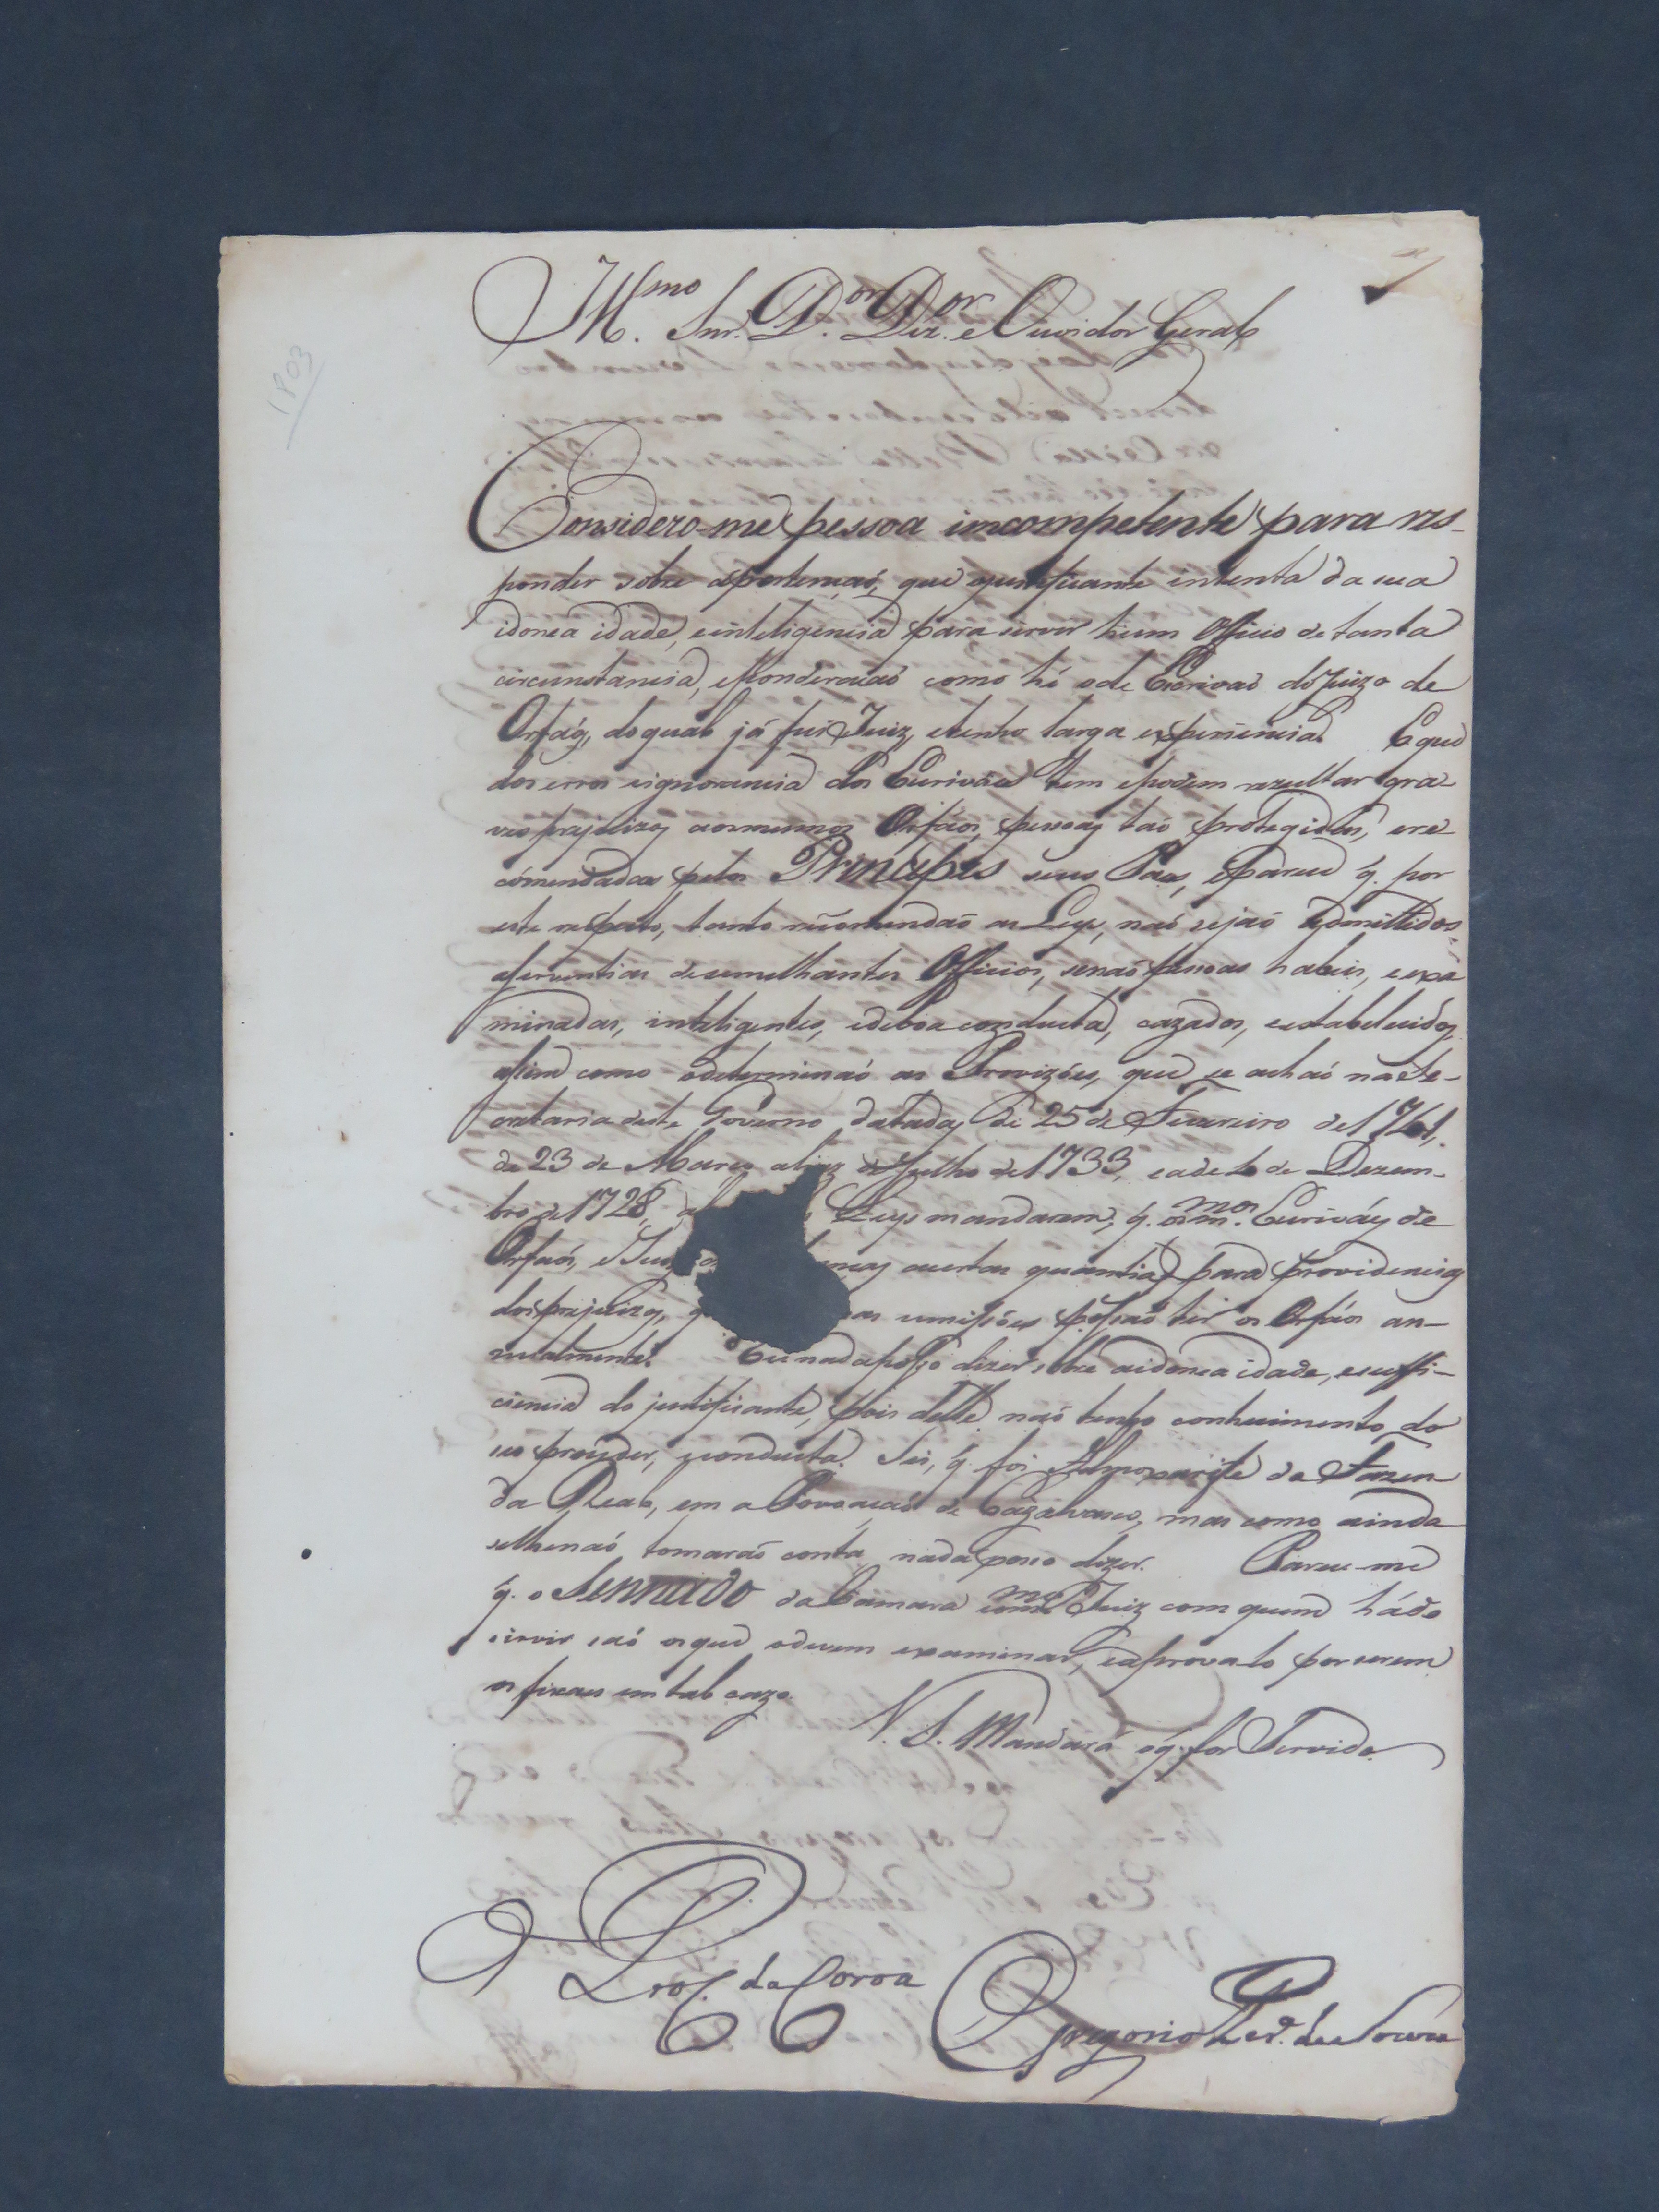 M.mo Snr. D.or Dez.or e Ouvidor Geral
1803
Considero-me pessoa imcompetente para res-
ponder sobre apertençaó, que ojustificante intenta da sua
idonea idade, einteligencia para servir hum Officio de tanta
circunstancia, eponderaçaó como hé ode Escrivaó do Juizo de
Orfaõs, do qual já fui Juiz, etenho larga experiencia. E que
dos erros eignorancia dos Escrivães tem epodem rezultar gra-
ves prejuizos aos mesmos Orfãos, pessoas taó protegidas, ere-
cómendadas pelos Principes seus Paes, eparece q. por
este respeito, tanto recomendaõ as Leys, naó sejaó admittidos
aserventias desemelhantes Officios, senaó pessoas habeis, eexa
minadas, inteligentes, edeboa conducta, cazados, eestabelecidos,
assim como odeterminaó as Provizões, que se achaó na Se-
cretaria deste Governo datadas de 25 de Fevereiro de 1761,
de 23 de Março aliaz de Julho de 1733, eade 10 de Dezem-
bro de 1728, Leys mandarem, q. os m.mos Escrivães de
Orfaós, e Juiz certas quantias para providencias
dos prejuizos, q as omissões possaó ter os Orfãos an-
nualmente. Eu nada posso dizer sobre aidonea idade, esuffi-
ciencia do justificante, pois delle naó tenho conhecimento do
seo proceder, econducta. Sei, q. foi Almoxarife da Fazen
da Real, em a Povoaçaó de Cazalvasco, mas como ainda
selhenaó tomaraó conta nada posso dizer. Parece-me
q. o Sennado da Camara como m.mo Juiz com quem háde
servir saó osque odevem examinar, eaprovalo por serem
os fiscaes em tal cazo.
V. S. Mandará oq. for Servido.
O Proc. da Coroa
Gregorio Per.a de Souza